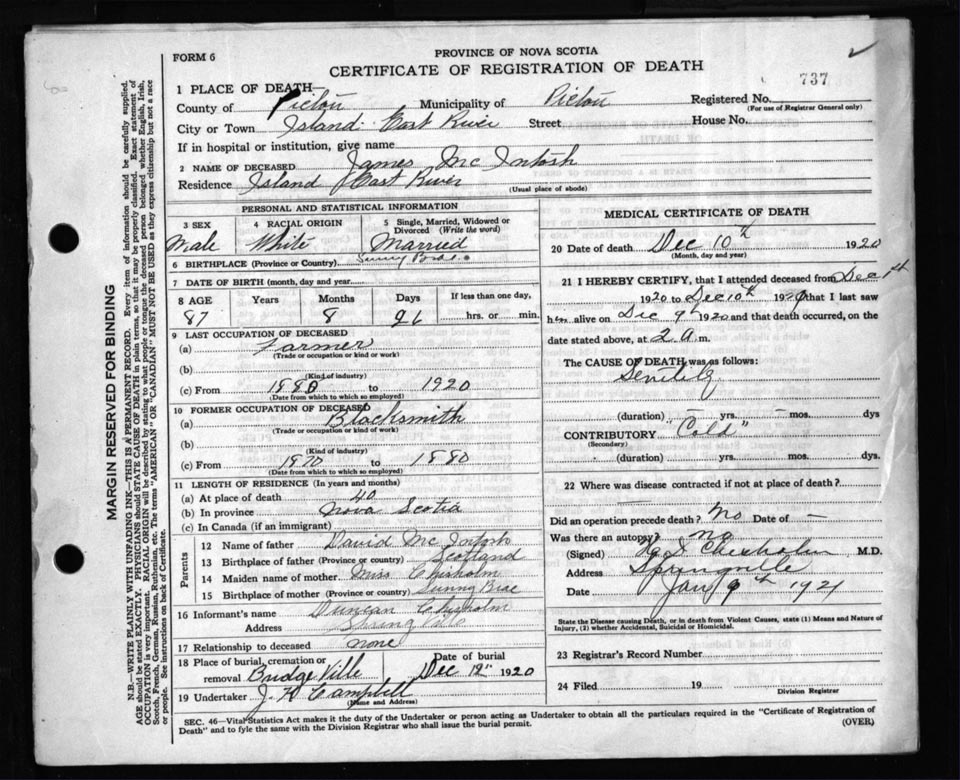 FORM 6
PROVINCE OF NOVA SCOTIA
CERTIFICATE OF REGISTRATION OF DEATH
737
1 PLACE OF DEATH—
County of Pictou Municipality of Pictou Registered No.
(For use of Registrar General only)
City or Town Island East River Street House No.
If in hospital or institution, give name
2 NAME OF DECEASED James Mc Intosh
Residence Island East River
(Usual place of abode)
PERSONAL AND STATISTICAL INFORMATION
3 SEX 4 RACIAL ORIGIN 5 Single, Married, Widowed or Divorced (Write the word)
Male White Married
6 BIRTHPLACE (Province or Country) Sunny Brae
7 DATE OF BIRTH (month, day and year)
8 AGE Years Months Days If less than one day,
87 8 26 hrs. or min.
9 LAST OCCUPATION OF DECEASED
(a) Farmer
(Trade or occupation or kind or work)
(b)
(Kind of industry)
(c) From 1880 to 1920
(Date from which to which so employed)
10 FORMER OCCUPATION OF DECEASED
(a) Blacksmith
(Trade or occupation or kind of work)
(b)
(Kind of industry)
(c) From 1870 to 1880
(Date from which to which so employed)
11 LENGTH OF RESIDENCE (In years and months)
(a) At place of death 40
(b) In province Nova Scotia
(c) In Canada (if an immigrant)
Parents
12 Name of father David Mc Intosh
13 Birthplace of father (Province or country) Scotland
14 Maiden name of mother Miss Chisholm
15 Birthplace of mother (Province or country) Sunny Brae
16 Informant's name Duncan Chisholm
Address Spring Ville
17 Relationship to deceased none
18 Place of burial, cremation or removal Bridge Ville Date of burial Dec 12th 1920
19 Undertaker J. H Campbell
(Name and Address)
MEDICAL CERTIFICATE OF DEATH
20 Date of death Dec 10th 1920
(Month, day and year)
21 I HEREBY CERTIFY, that I attended deceased from Dec 1st
1920 to Dec 10th 1920 that I last saw
him alive on Dec 9th 1920 and that death occurred, on the
date stated above, at 2 a.m.
The CAUSE OF DEATH was as follows:
Senility
(duration) — yrs. — mos. dys
CONTRIBUTORY "Cold"
(Secondary)
(duration) yrs. mos. dys.
22 Where was disease contracted if not at place of death?
Did an operation precede death? No Date of —
Was there an autopsy? no
(Signed) Chisholm M.D.
Address Springville
Date Jan 9th 1921
State the Disease causing Death, or in death from Violent Causes, state (1) Means and Nature of
Injury, (2) whether Accidental, Suicidal or Homicidal.
23 Registrar's Record Number
24 Filed 19
Division Registrar
SEC. 46—Vital Statistics Act makes it the duty of the Undertaker or person acting as Undertaker to obtain all the particulars required in the "Certificate of Registration of
Death" and to fyle the same with the Division Registrar who shall issue the burial permit.
(OVER)
MARGIN RESERVED FOR BINDING
N.B.—WRITE PLAINLY WITH UNFADING INK—THIS IS A PERMANENT RECORD. Every item of information should be carefully supplied.
AGE should be stated EXACTLY. PHYSICIANS should STATE CAUSE OF DEATH in plain terms, so that it may be properly classified. Exact statement of
OCCUPATION is very important. RACIAL ORIGIN will be described by stating to what people or tongue the deceased person belonged whether English, Irish,
Scotch, French, German, Russian, Ruthenian, etc. The terms "AMERICAN" or "CANADIAN" MUST NOT BE USED as they express citizenship but not a race
or people. See instructions on back of Certificate.